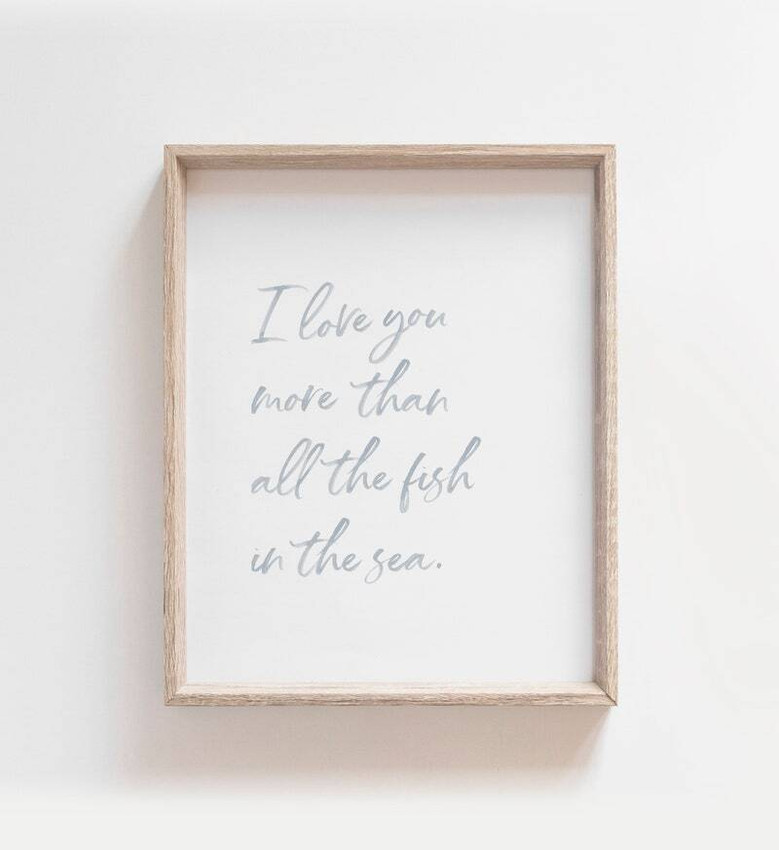 I love you
more than
all the fish
in the sea.